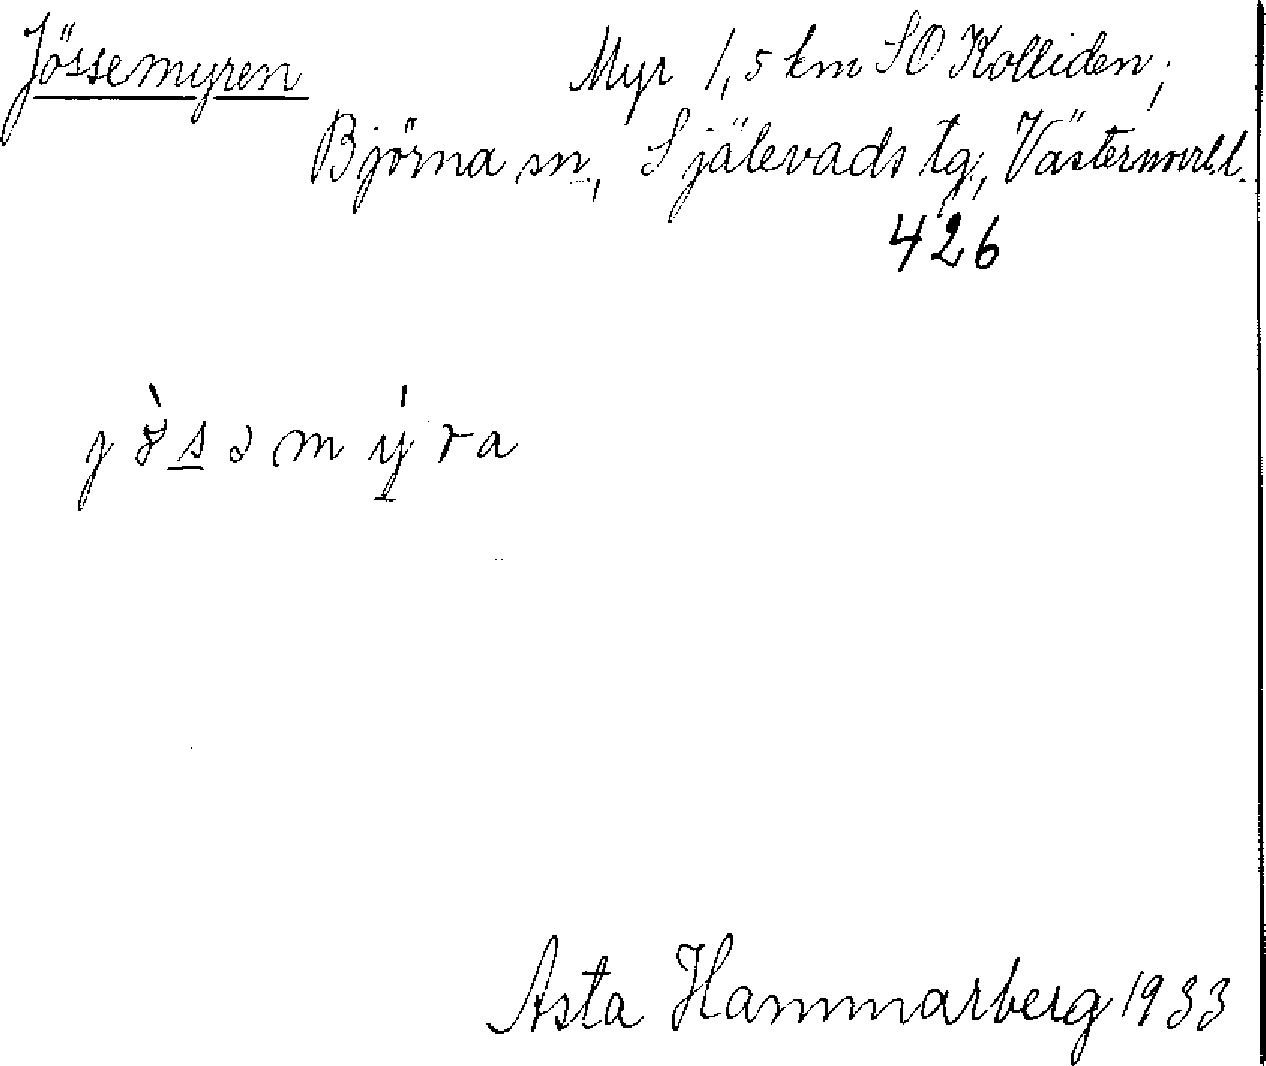 Jössemyren Myr 1,5 km SO Kolliden;
Björna sn, Själevads tg, Västernorrl. l.
426
jö̀səmýra
Asta Hammarberg 1933